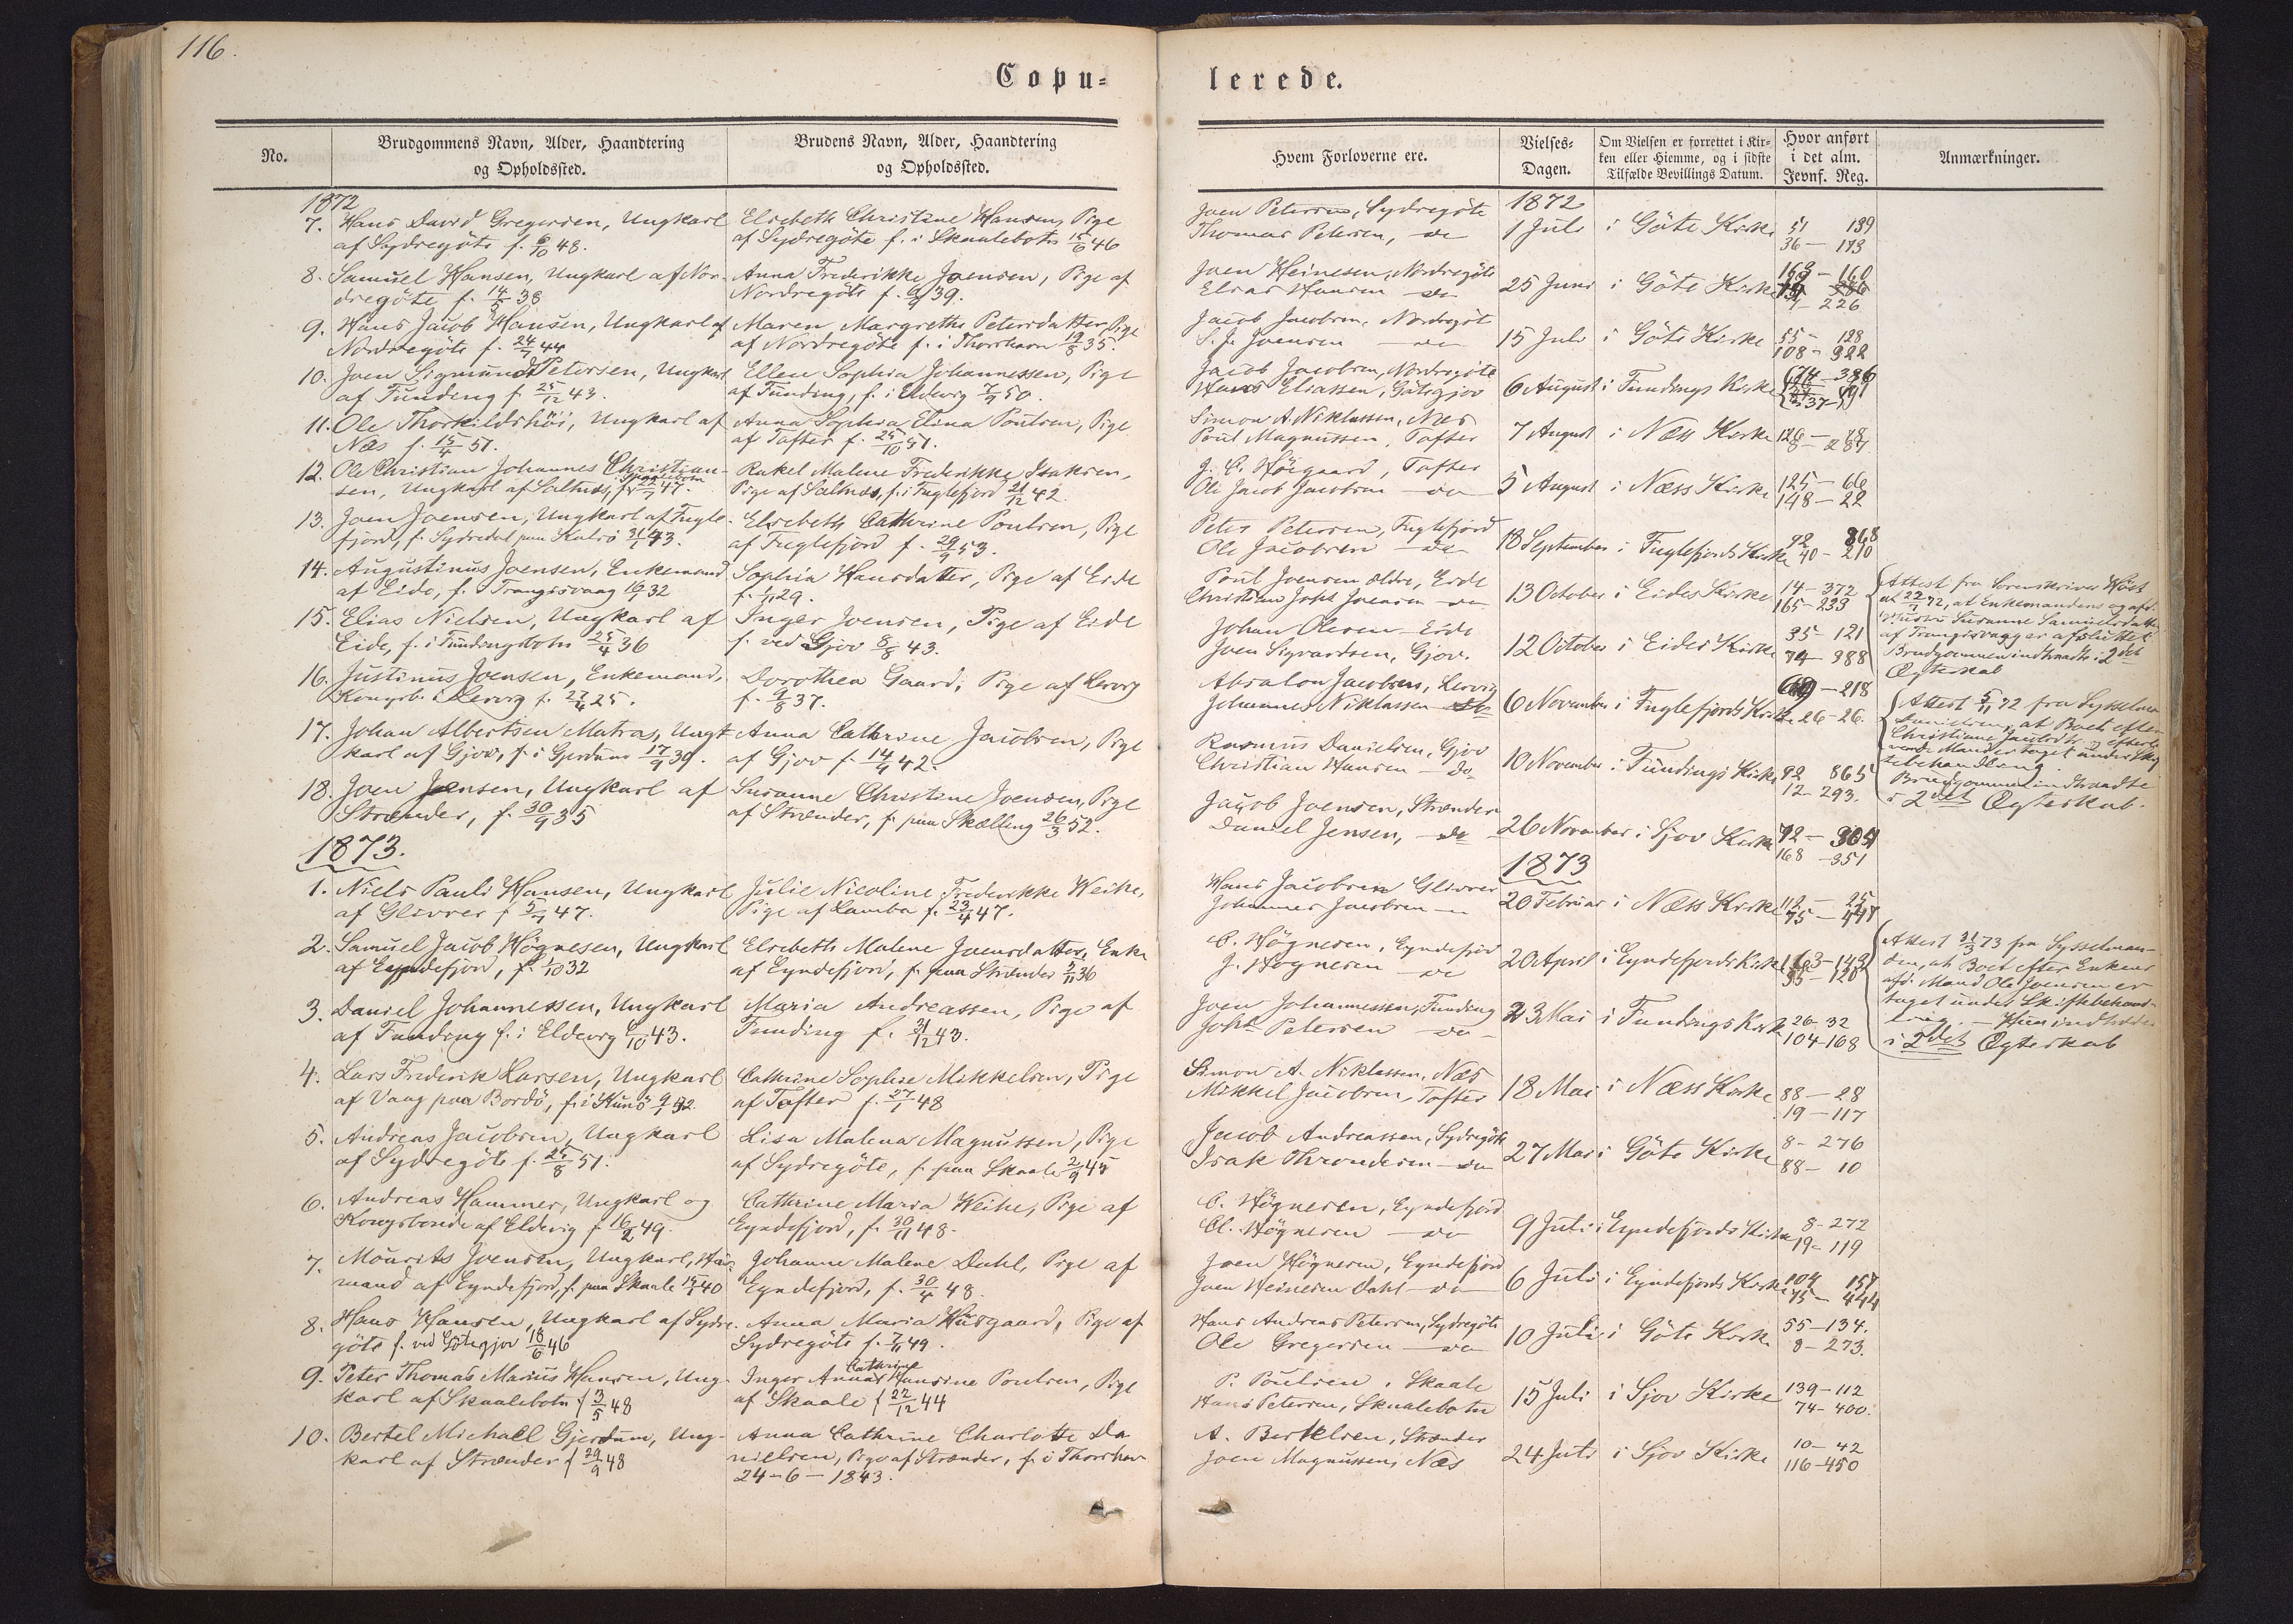 116.
Copu-
lerede.
No.
Brudgommens Navn, Alder, Haandtering
og Opholdssted.
Brudens Navn, Alder, Haandtering
og Opholdssted.
Hvem Forloverne ere.
Vielses-
Dagen.
Om Vielsen er forrettet i Kir-
ken eller Hiemme, og i sidste
Tilfælde Bevillings Datum.
Hvor anført
i det alm.
Jevnf. Reg.
Anmærkninger.
1872
1872
7. Hans David Gregersen, Ungkarl
af Sydregöte f. 6/10 48.
Elsebeth Christine Hansen, Pige
af Sydregöte f. i Skaalebotn 15/6 46
Joen Petersen, Sydregöte
Thomas Petersen, do
1 Juli
i Göte Kirke
51 139
36 - 113
8. Samuel Hansen, Ungkarl af Nor-
dregöte f. 14/5 38
Anna Frederikke Joensen, Pige af
Nordregöte f. 6/9 39.
Joen Heinesen, Nordregöte
Elias Hansen do
25 Juni
i Göte Kirke
163 - 160
226
9. Hans Jacob Hansen, Ungkarl af
Nordregöte f. 24/7 44
Maren Margrethe Petersdatter, Pige
af Nordregöte f. i Thorshavn 19/8 35.
Jacob Jacobsen, Nordregöt
S. J. Joensen do
15 Juli
i Göte Kirke
55 - 128
108 - 322
10. Joen Sigmund Petersen, Ungkarl
af Funding f. 25/12 43.
Ellen Sophia Johannessen, Pige
af Funding, f. i Eldevig 7/9 50.
Jacob Jacobsen, Nordregöte
Hans Eliassen, Götegjov
6 August
i Fundings Kirke
74 - 386
11. Ole Thorkildshöi, Ungkarl af
Næs f. 15/4 51.
Anna Sophia Elina Poulsen, Pige
af Tofter f. 25/10 51.
Simon A. Niklassen, Næs
Poul Magnussen, Tofter
7 August
i Næss Kirke
126 - 78
8 - 287
12. Ole Christian Johannes Christian-
sen, Ungkarl af Saltnæs, f. 22/7 47.
Rakel Malene Frederikke Isaksen,
Pige af Saltnæs, f. i Fuglefjord 21/12 42.
J. C. Höigaard, Tofter
Ole Jacob Jacobsen do
5 August
i Næss Kirke
125 - 66
148 - 22
13. Joen Joensen, Ungkarl af Fugle-
fjord, f. Sydredal paa Kalsö 31/1 43.
Elsebeth Cathrine Poulsen, Pige
af Fuglefjord f. 29/9 53.
Peter Petersen, Fuglefjord
Ole Jacobsen do
18 September
i Fuglefjords Kirke
92 868
40 - 210
14. Augustinus Joensen, Enkemand
af Eide, f. Trangisvaag 32
Sophia Hansdatter, Pige af Eide
29.
Poul Joensen ældre, Eide
Christian Joensen do
13 October
i Eides Kirke
14 - 372
165 - 233
Attest fra Sorenskriver Höst
af 22/7 72, at Enkemandens og afd.
Susanne Samuelsdatter
af Trangisvaag er afsluttet
Brudgommen indtraadte i 2det
Ægteskab
15. Elias Nielsen, Ungkarl af
Eide, f. i Fundingsbotn 25/4 36
Inger Joensen, Pige af Eide
f. ved Gjov 8/8 43.
Johan Olesen Eide
Joen Sigvardsen, Gjov.
12 October
i Eides Kirke
35 - 121
74 - 388
16. Justinus Joensen, Enkemand,
Kongsb. i Lervig f. 27/4 25.
Dorothea Gaard, Pige af Lervig
f. 9/8 37.
Absalon Jacobsen, Lervig
Johannes Niklassen do
6 November
i Fuglefjords Kirke
69 - 218
26 - 26.
Attest 5/11 72 fra Sysselman
Danielsen, at Boet efter
Christiane
Mand er taget under Skif
tebehandling.
Brudgommen indtraadte
i 2det Ægteskab.
17. Johan Albertsen Matras, Ungt
karl af Gjov, f. i Gjerdum 17/9 39.
Anna Cathrine Jacobsen, Pige
af Gjov f. 14/4 42.
Rasmus Danielsen, Gjov
Christian Hansen do
10 November
i Fundings Kirke
92 865
12 - 293.
18. Joen Jensen, Ungkarl af
Strænder, f. 30/9 35
Susanne Christine Joensen, Pige
af Strænder, f. paa Skælling 26/3 52.
Jacob Joensen, Strænder
Daniel Jensen, do
26 November
i Sjov Kirke
72 - 304
168 - 351
1873.
1873
1. Niels Pauli Hansen, Ungkarl
af Glivrer f. 5/7 47.
Julie Nicoline Frederikke Weihe,
Pige af Lamba f. 23/4 47.
Hans Jacobsen Glivrer
Johannes Jacobsen
20 Februar
i Næss Kirke
112 - 25
75 - 447
2. Samuel Jacob Högnesen, Ungkarl
af Eyndefjord, f. 1/10 32
Elsebeth Malene Joensdatter, Enke
af Eyndefjord, f. paa Strænder 36
C. Högnesen, Eyndefjord
J. Högnesen do
20 April
i Eyndefjords Kirke
163 - 143
35 - 120
Attest 31/3 73 fra Sysselman-
den, at Boet efter Enkens
afd. Mand Ole Joensen er
taget under Skiftebehand-
ling. — Hun indtræder
i 2det Ægteskab
3. Daniel Johannessen, Ungkarl
af Funding f. i Eldevig 6/10 43.
Maria Andreassen, Pige af
Funding f. 31/12 43.
Joen Johannessen, Funding
Johs Petersen do
23 Mai
i Fundings Kirke
26 - 32
104 - 168
4. Lars Frederik Larsen, Ungkarl
af Vaag paa Bordö, f. i Kunö 32.
Cathrine Sophie Mikkelsen, Pige
af Tofter f. 27/1 48
Simon A. Niklassen, Næs
Mikkel Jacobsen, Tofter
18 Mai
i Næss Kirke
88 - 28
19 - 117
5. Andreas Jacobsen, Ungkarl
af Sydregöte f. 25/8 51.
Lisa Malena Magnussen, Pige
af Sydregöte, f. paa Skaale 2/9 45
Jacob Andreassen, Sydregöte
Isak Throndesen do
27 Mai
i Göte Kirke
8 - 276
88 - 10
6. Andreas Hammer, Ungkarl og
Kongsbonde af Eldevig f. 16/2 49.
Cathrine Maria Weihe, Pige af
Eyndefjord, f. 30/11 48.
C. Högnesen, Eyndefjord
Cl. Högnesen do
9 Juli
i Eyndefjords Kirke
8 - 272
19 - 119
7. Mourits Joensen, Ungkarl, Huus-
mand af Eyndefjord, f. paa Skaale 40
Johanne Malene Dahl, Pige af
Eyndefjord, f. 30/4 48.
Joen Högnesen, Eyndefjord
Joen Heinesen Dahl do
6 Juli
i Eyndefjords Kirke
104 157
75 - 444
8. Hans Hansen, Ungkarl af Sydre-
göte f. ved Götegjov 18/6 46
Anna Maria Husgaard, Pige af
Sydregöte f. 7/11 49.
Hans Andreas Petersen, Sydregöte
Ole Gregersen do
10 Juli
i Göte Kirke
55 - 134.
8 - 273.
9. Peter Thomas Marius Hansen, Ung-
karl af Skaalebotn f. 3/5 48
Cathrine
Inger Anna Hansine Poulsen, Pige
af Skaale f. 22/12 44
P. Poulsen, Skaale
Hans Petersen, Skaalebotn
15 Juli
i Sjov Kirke
139 - 112
74 - 400.
10. Bertel Michael Gjerdum, Ung-
karl af Strænder f. 29/9 48
Anna Cathrine Charlotte Da-
nielsen, Pige af Strænder, f. i Thorshavn
24 - 6 - 1843.
A. Bertelsen, Strænder
Joen Magnussen, Næs
24 Juli
i Sjov Kirke
10 - 42
116 - 450